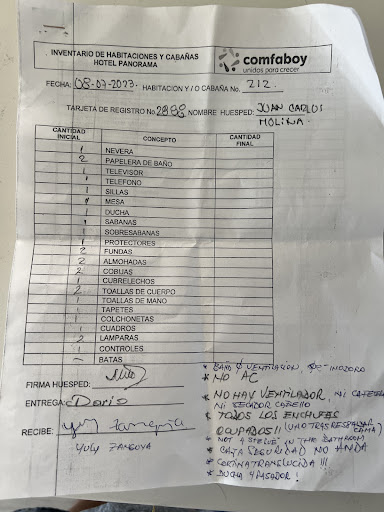 INVENTARIO DE HABITACIONES Y CABAÑAS
HOTEL PANORAMA
comfaboy
unidos para crecer
FECHA: 08-07-2023 HABITACION Y / O CABAÑA No. 212
TARJETA DE REGISTRO No 2888 NOMBRE HUESPED: JUAN CARLOS
MOLINA.
CANTIDAD INICIAL CONCEPTO CANTIDAD FINAL
1 NEVERA
2 PAPELERA DE BAÑO
1 TELEVISOR
1 TELEFONO
1 SILLAS
1 MESA
1 DUCHA
1 SABANAS
1 SOBRESABANAS
1 PROTECTORES
2 FUNDAS
2 ALMOHADAS
2 COBIJAS
1 CUBRELECHOS
2 TOALLAS DE CUERPO
1 TOALLAS DE MANO
1 TAPETES
1 COLCHONETAS
1 CUADROS
2 LAMPARAS
1 CONTROLES
– BATAS
FIRMA HUESPED:
ENTREGA: Dario
RECIBE:
YULY
* BAÑO VENTILACION, INODORO
* NO AC
* NO HAY VENTILADOR, NI CAFETERA
NI SECADOR CABELLO
* TODOS LOS ENCHUFES
OCUPADOS!! (UNO TRAS RESPALDAR CAMA)
* NOT A SHELVE IN THE BATHROOM
* CAJA SEGURIDAD NO ANDA
* CORTINA TRANSLUCIDA !!!
* DUCHA !